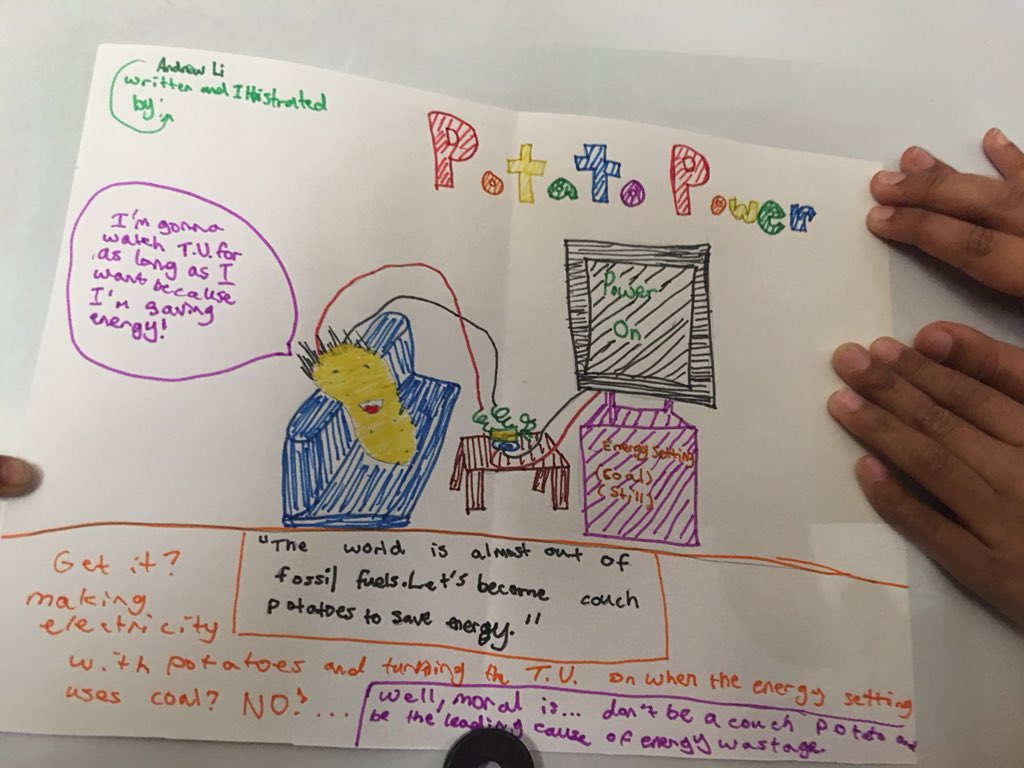 Andrew Li
written and Illustrated
by:
Potato Power
I'm gonna
watch T.V. for
as long as I
want because
I'm saving
energy!
Power
On
Energy setting
(coal)
(still)
"The world is almost out of
fossil fuels. Let's become couch
potatoes to save energy."
Get it?
making
electricity
with potatoes and turning the T.V. on when the energy setting
uses coal? NO!...
Well, moral is... don't be a couch potato and
be the leading cause of energy wastage.